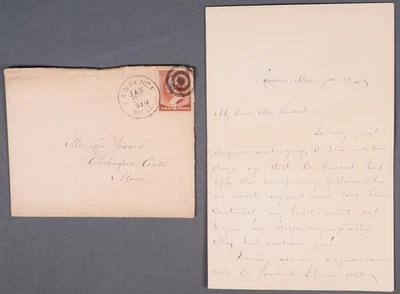 LAWRENCE
JAN
9 AM
MASS.
Mrs. Levi Howard
Chelmsford Centre
Mass
Lawrence, Mass. Jan.
My dear Mrs. Howard,
To my great
surprise and grief I learned two
days ago that Dr. Howard had
left the company of
on earth, and
Instantly my heart went out
to you in deep sympathy.
May God sustain you!
During all my acquaintance
with Dr. Howard I have felt